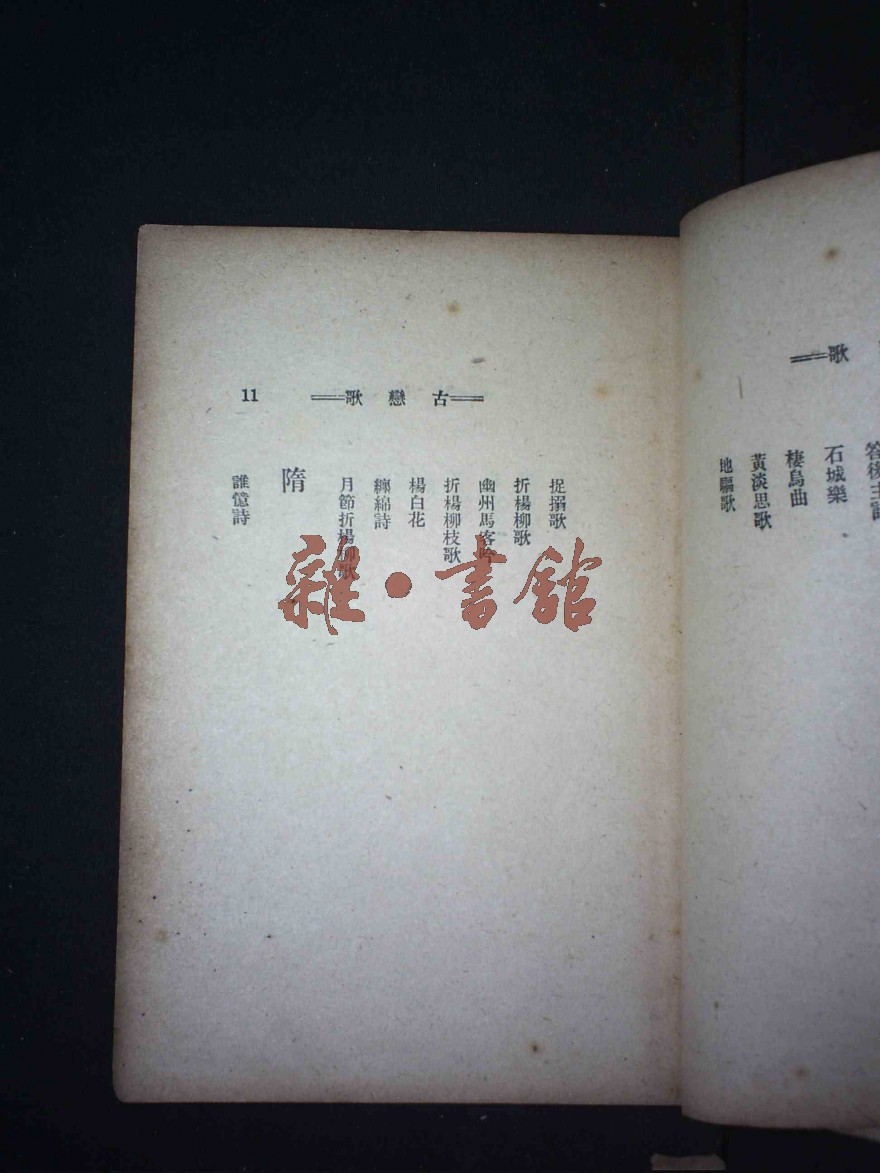 歌
答後主詩
石城樂
棲烏曲
黃淡思歌
地驅歌
古戀歌
11
捉搦歌
折楊柳歌
幽州馬客吟
折楊柳枝歌
楊白花
纏綿詩
月節折楊柳歌
隋
誰憶詩
雜·書館